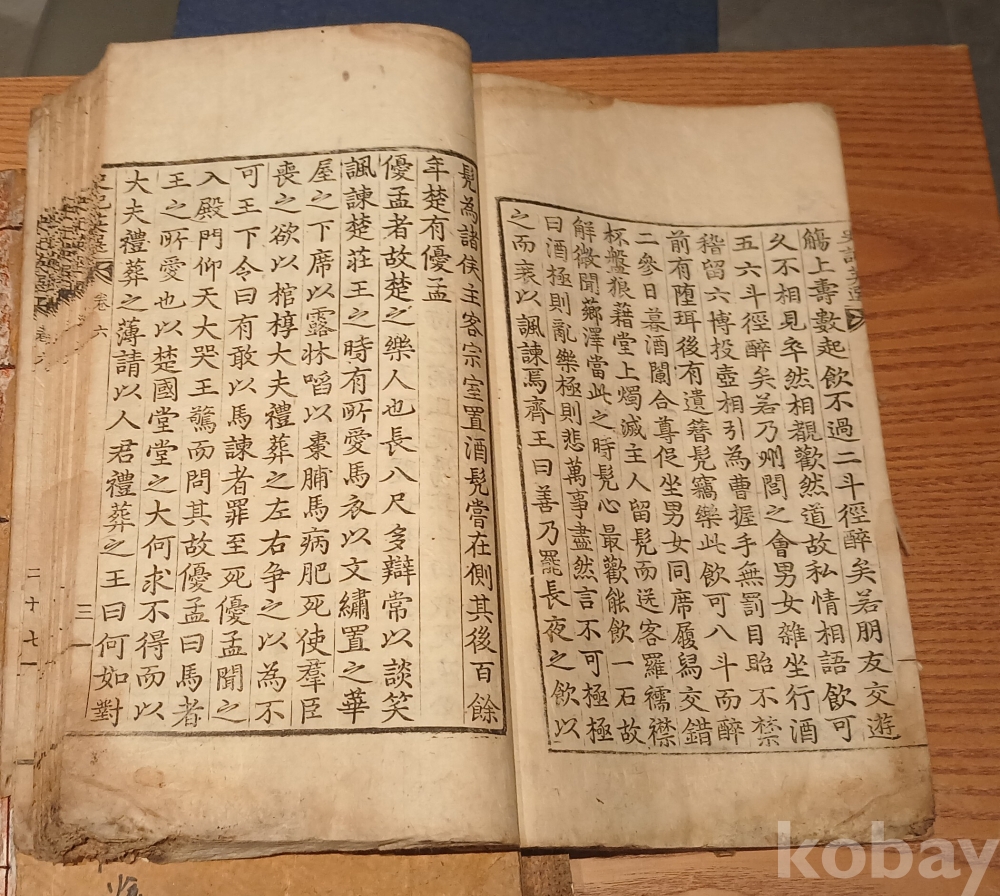 觴上壽數起飲不過二斗徑醉矣若朋友交遊
久不相見卒然相覩歡然道故私情相語飲可
五六斗徑醉矣若乃州閭之會男女雜坐行酒
稽留六博投壺相引為曹握手無罰目眙不禁
前有堕珥後有遺簪髡竊樂此飲可八斗而醉
二參日暮酒闌合尊促坐男女同席履舄交錯
杯盤狼藉堂上燭滅主人留髡而送客羅襦襟
解微聞薌澤當此之時髡心最歡能飲一石故
曰酒極則亂樂極則悲萬事盡然言不可極極
之而衰以諷諫焉齊王曰善乃罷長夜之飲以
髡為諸侯主客宗室置酒髡嘗在側其後百餘
年楚有優孟
優孟者故楚之樂人也長八尺多辯常以談笑
諷諫楚莊王之時有所愛馬衣以文繡置之華
屋之下席以露牀啗以棗脯馬病肥死使羣臣
喪之欲以棺椁大夫禮葬之左右争之以為不
可王下令曰有敢以馬諫者罪至死優孟聞之
入殿門仰天大哭王驚而問其故優孟曰馬者
王之所愛也以楚國堂堂之大何求不得而以
大夫禮葬之薄請以人君禮葬之王曰何如對
史記英選 卷六 三
二十七
kobay